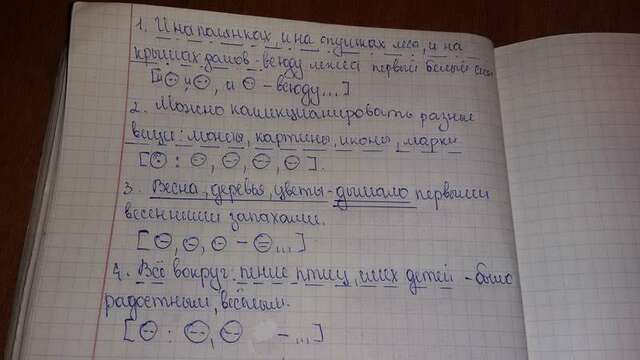 1. И на полянках, и на опушках леса, и на
крышах домов - всюду лежит первый белый снег
[и ⊖, и ⊖, и ⊖ - всюду...]
2. Можно коллекционировать разные
вещи: монеты, картины, иконы, марки
[⊖ : ⊖, ⊖, ⊖, ⊖].
3. Весна, деревья, цветы - дышало первыми
весенними запахами.
[⊖, ⊖, ⊖ - ⊜...]
4. Всё вокруг: пение птиц, смех детей - было
радостным, весёлым.
[⊖ : ⊖, ⊖ - ...]